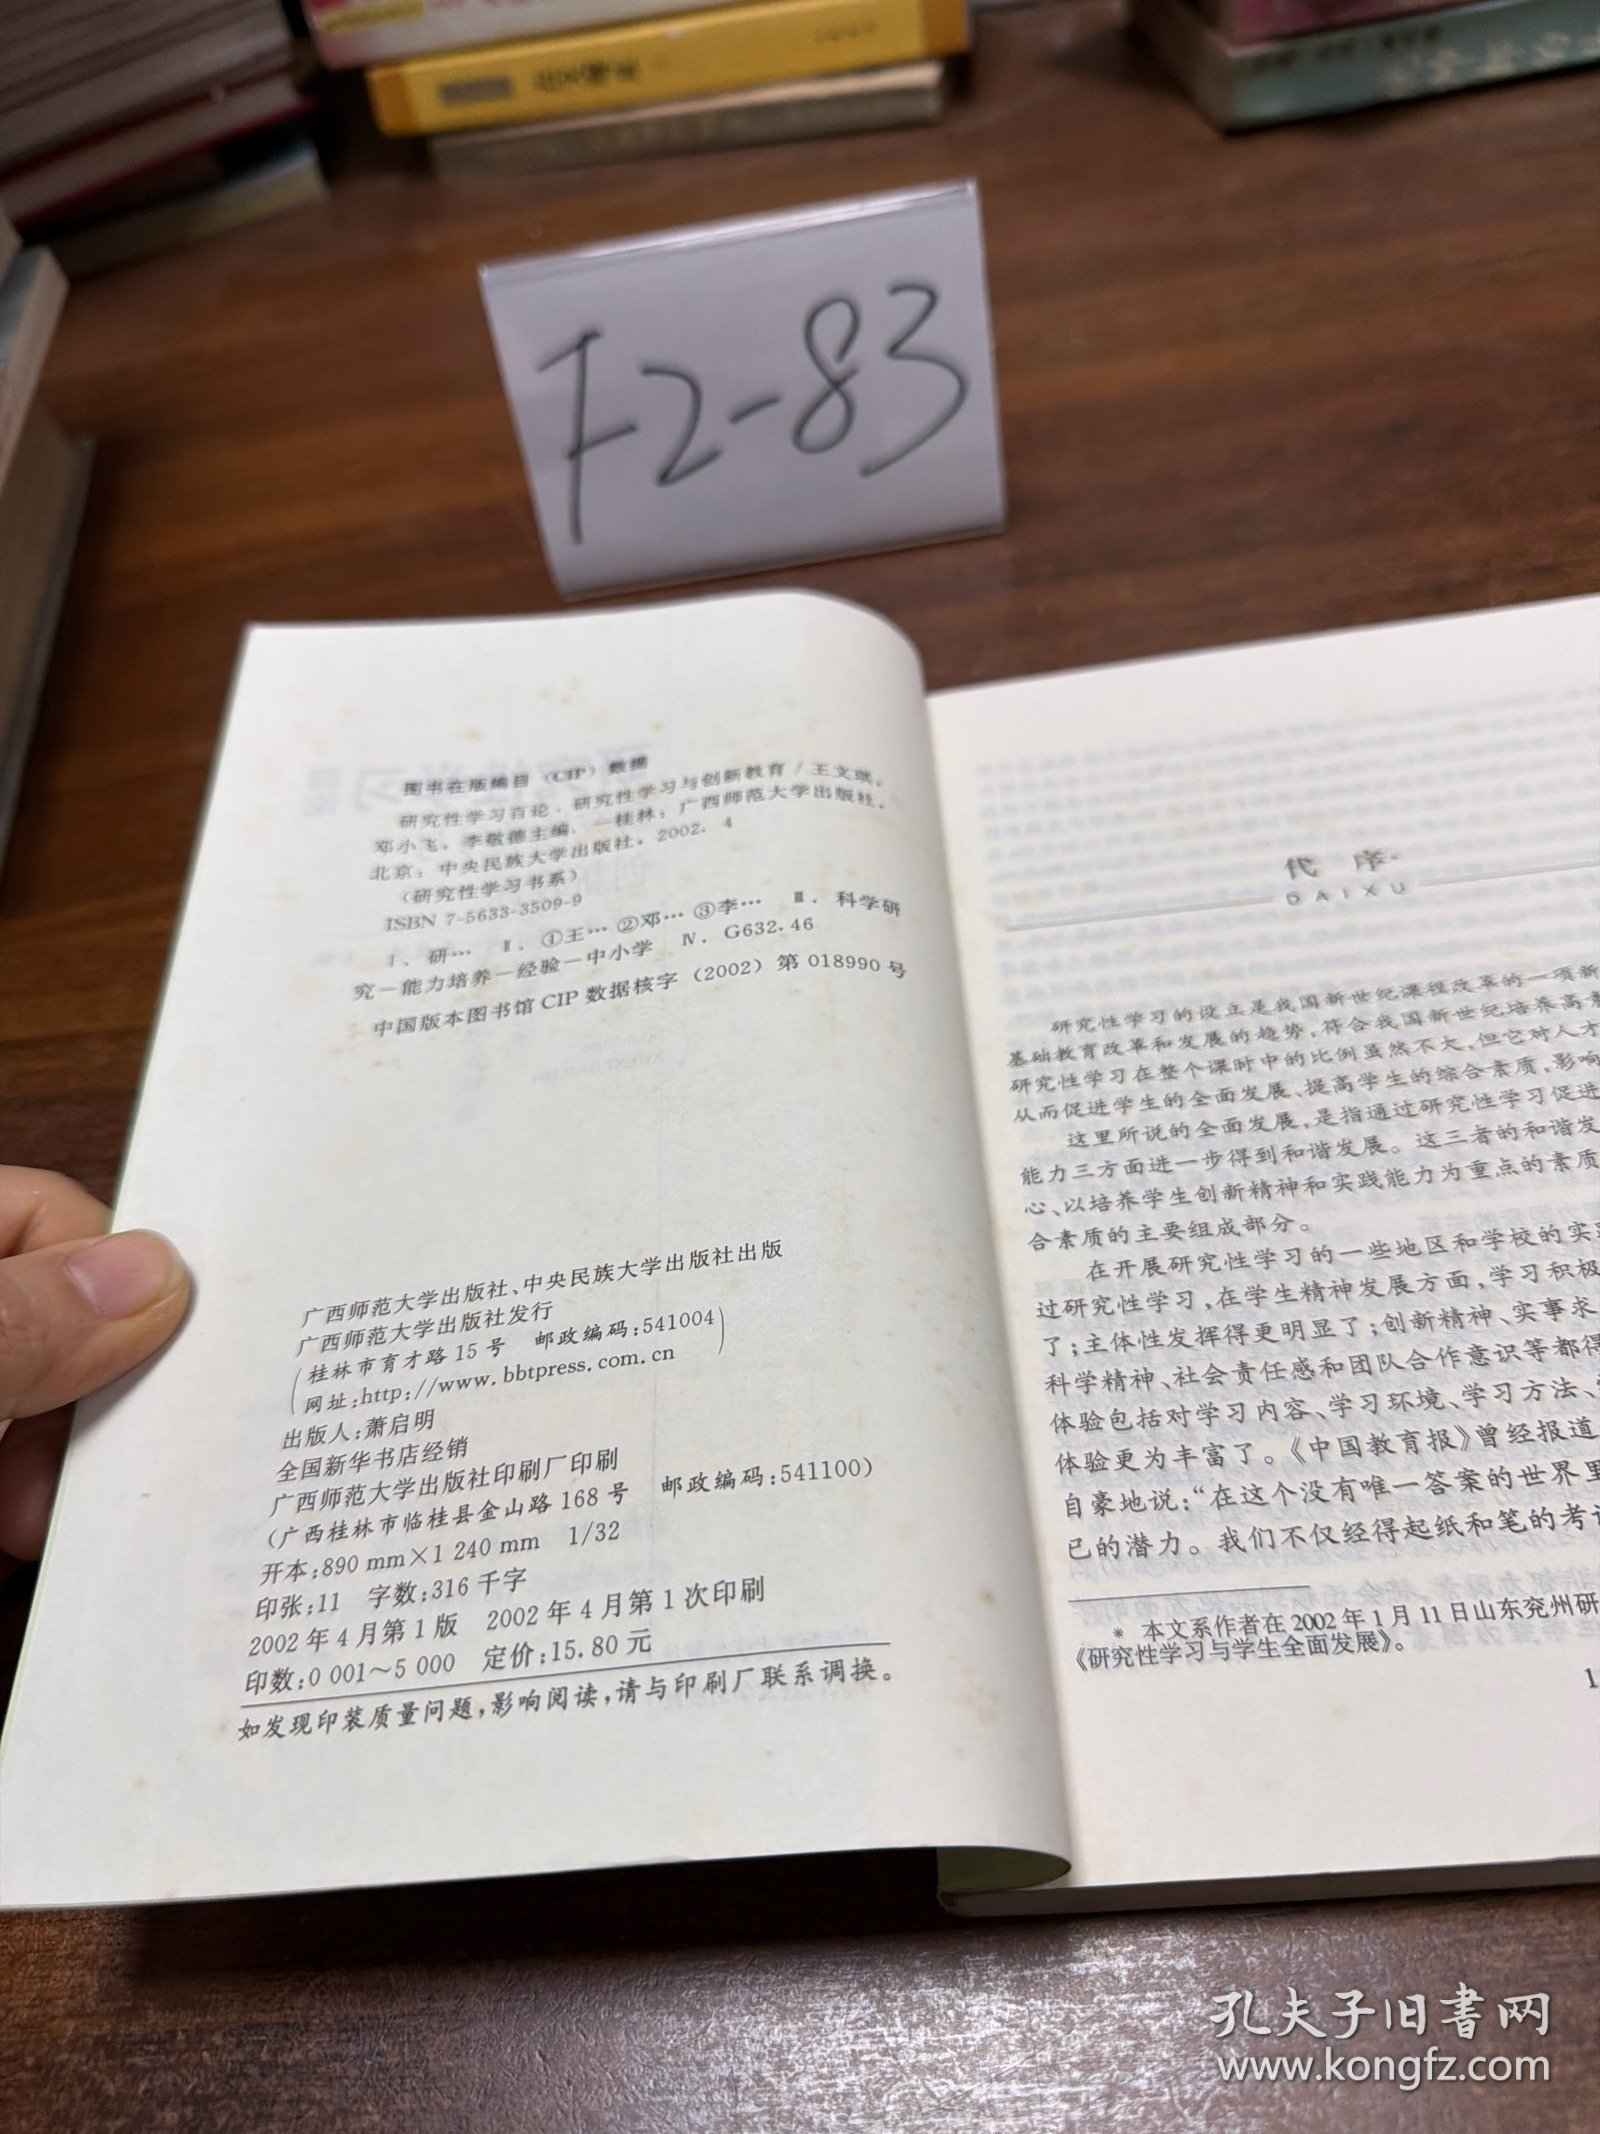 F2-83
图书在版编目（CIP）数据
研究性学习百论．研究性学习与创新教育／王文琪，
邓小飞，李敬德主编．—桂林：广西师范大学出版社，
北京：中央民族大学出版社，2002．4
（研究性学习书系）
ISBN 7-5633-3509-9
Ⅰ．研… Ⅱ．①王…②邓…③李… Ⅲ．科学研
究－能力培养－经验－中小学 Ⅳ．G632.46
中国版本图书馆CIP数据核字（2002）第018990号
广西师范大学出版社、中央民族大学出版社出版
广西师范大学出版社发行
(桂林市育才路15号 邮政编码:541004
网址:http://www.bbtpress.com.cn)
出版人:萧启明
全国新华书店经销
广西师范大学出版社印刷厂印刷
(广西桂林市临桂县金山路168号 邮政编码:541100)
开本:890 mm×1 240 mm 1/32
印张:11 字数:316千字
2002年4月第1版 2002年4月第1次印刷
印数:0 001～5 000 定价:15.80元
如发现印装质量问题,影响阅读,请与印刷厂联系调换。
代序*
DAIXU
研究性学习的设立是我国新世纪课程改革的一项新
基础教育改革和发展的趋势,符合我国新世纪培养高素
研究性学习在整个课时中的比例虽然不大,但它对人才
从而促进学生的全面发展、提高学生的综合素质,影响
这里所说的全面发展,是指通过研究性学习促进
能力三方面进一步得到和谐发展。这三者的和谐发
心、以培养学生创新精神和实践能力为重点的素质
合素质的主要组成部分。
在开展研究性学习的一些地区和学校的实践
过研究性学习,在学生精神发展方面,学习积极
了;主体性发挥得更明显了;创新精神、实事求
科学精神、社会责任感和团队合作意识等都得
体验包括对学习内容、学习环境、学习方法、
体验更为丰富了。《中国教育报》曾经报道
自豪地说:“在这个没有唯一答案的世界里
己的潜力。我们不仅经得起纸和笔的考
* 本文系作者在2002年1月11日山东兖州研
《研究性学习与学生全面发展》。
1
孔夫子旧书网
www.kongfz.com